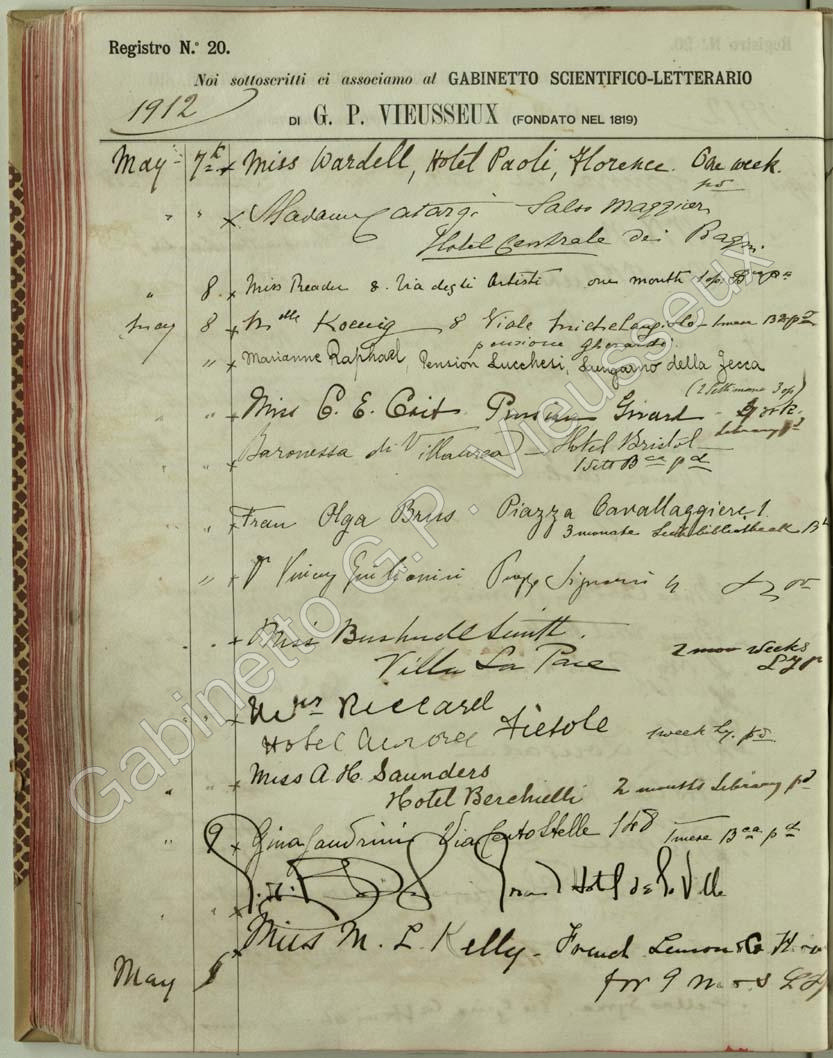 Registro N.° 20.
Noi sottoscritti ci associamo al GABINETTO SCIENTIFICO-LETTERARIO
1912
DI G. P. VIEUSSEUX (FONDATO NEL 1819)
May 7th x Miss Wardell, Hotel Paoli, Florence. One week.
pd
" " x Madame Catargi Salso Maggiore
Hotel Centrale dei Bagni
" 8 x Miss Reader 8. Via degli Artisti one month 1 op. Bca pa
May 8 x Mlle Koenig 8 Viale Michelangiolo 1 mese
pensione Gherardi.
" x Marianne Raphael, Pension Lucchesi, Lungarno della Zecca
(2 settimane 3 op)
" " x Miss C. E. Pension Girard
Library pd
" x Baronessa di Villaurea - Hotel Bristol
1 sett Bca pd
" x Frau Olga Brus Piazza Cavallaggieri 1.
3 monate
" x
x Miss Smith.
Villa La Pace 2 weeks
" x Mrs Riccard
Hotel Aurora Fiesole 1 week Ly. pd.
" " x Miss A. H. Saunders
Hotel Berchielli 2 months Library pd
" 9 x Gina Via Cento Stelle 148 1 mese Bca pd
" x Grand Hotel de la Ville
x Miss M. L. Kelly - French Lemon & Co
May for 9
Gabinetto G.P. Vieusseux